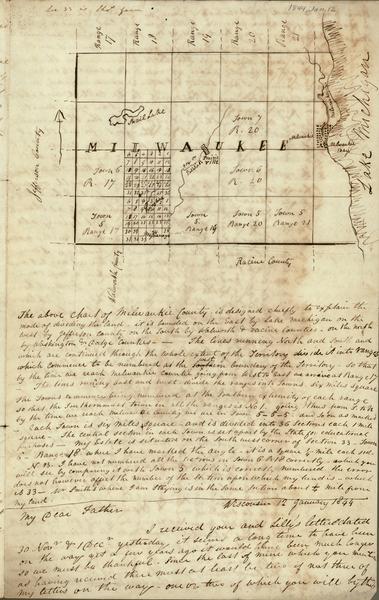 1844, Jan. 12
Range 17
Range 18
Range 19
Range 20
Range 21
Lake Michigan
Jefferson County
Snail Lake
Town 7
R. 20
MILWAUKEE
Milwaukee
Town 6
R. 17
Prairie
Ville
Town 6
R. 20
Town
5
Range 17
Town
5
Range 19
Town 5
Range 20
Town 5
Range 21
Walworth County
Racine County
The above chart of Milwaukie County is designed chiefly to explain the
mode of dividing the land. it is bounded on the East by Lake Michigan on the
west by Jefferson County on the South by Walworth & Racine Counties - on the north
by Washington & Dodge Counties - The lines running North and South and
which are continued through the whole extent of the Territory divide it into ranges
which commence to be numbered at the boundary of the Territory. So that
by the time they reach Milwaukie County going from West to East we are in at Range 17
The lines running East and West divide the ranges into Towns six miles square
The Towns commence to be numbered at the Southern extremity of each range
so that the Southernmost Town in all the ranges is No 1. going thus from S to N
by the time we reach Milwaukie Co we are in Town 5 - 6 - 7 - 8
Each Town is six miles square - and is divided into 36 sections each 1 mile
square - The central section in each Town is set apart by the State for educational
purposes - My Estate is situated on the South west corner of Section 33. Town
5 Range 18 where I have marked the angle - it is a square 1/2 mile each side.
N.B. I have not numbered all the sections in Town 6 R 18 correctly as you
will see by comparing it with Town 5 which is correctly numbered. the error
does not however affect the number of the Section upon which my land is - which
is 33 - Mr Smiths where I am staying is in the same Section about 1/4 mile from
my land.
Wisconsin 12 January 1844
My Dear Father
I received your and Lilly's letter dated
30 Novr & 1 Decr yesterday, it seems a long time to have been
on the way yet a few years ago it would have been much longer
so we must be thankful. Since the last of mine which you mention
as having received there must at least be two if not three of
my letters on the way - one or two of which you will by this